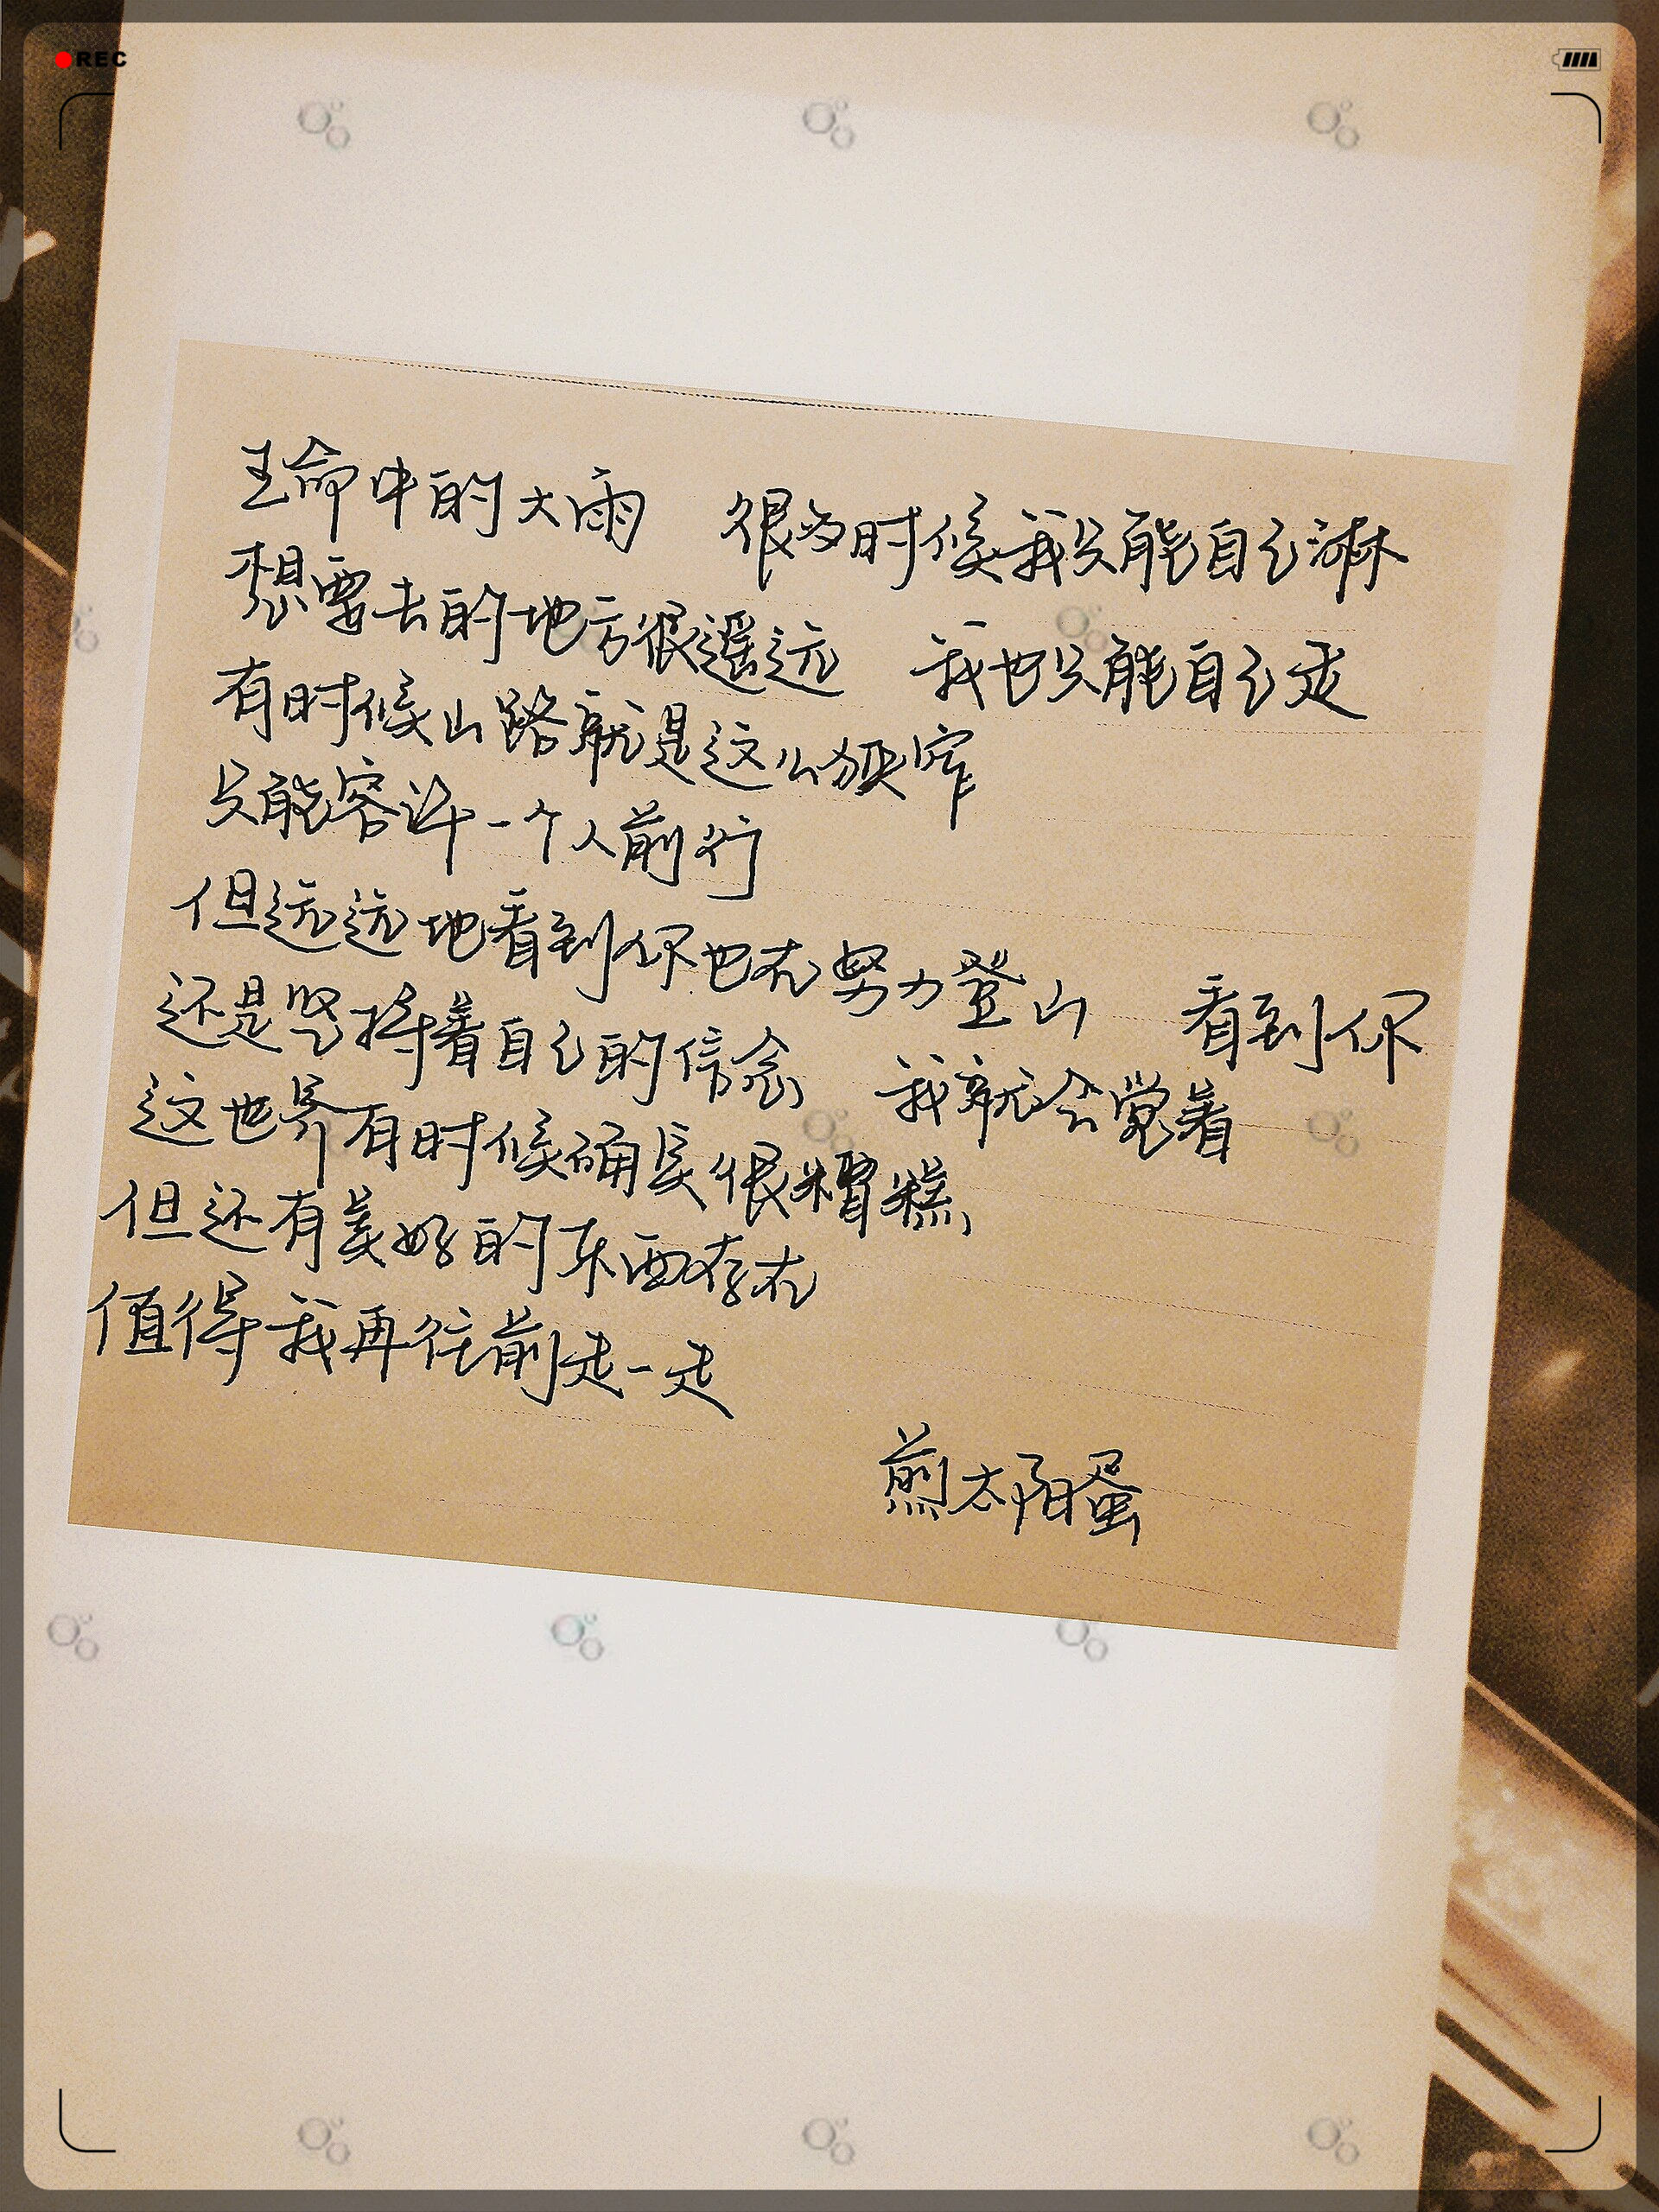 REC
生命中的大雨 很多时候我只能自己淋
想要去的地方很遥远 我也只能自己走
有时候山路就是这么狭窄
只能容许一个人前行
但远远地看到你也在努力登山 看到你
还是坚持着自己的信念 我就会觉着
这世界有时候确实很糟糕
但还有美好的东西存在
值得我再往前走一走
煎太阳蛋